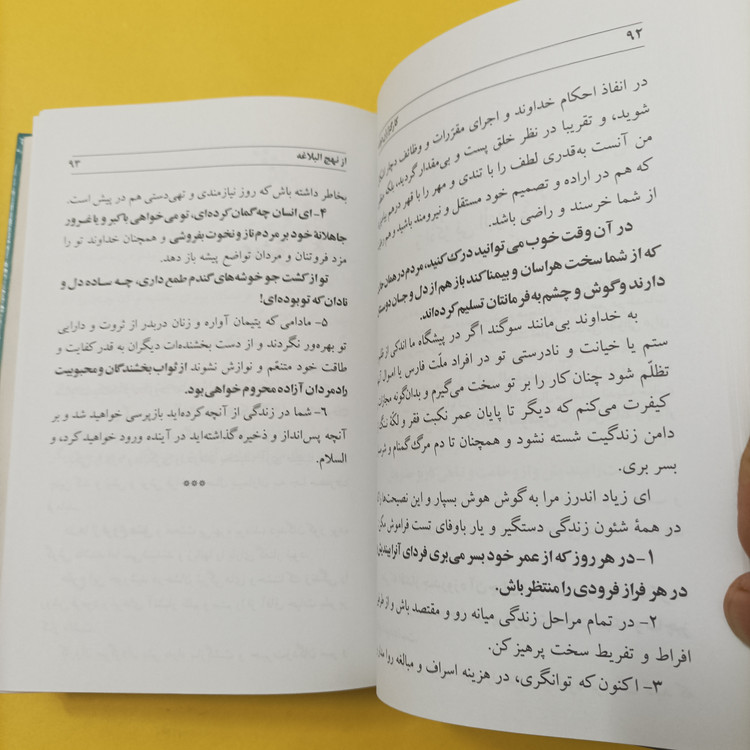 ۹۲
در انفاذ احکام خداوند و اجرای مقرّرات و وظائف دچار
شوید، و تقریبا در نظر خلق پست و بی‌مقدار گردید، بلکه
من آنست به‌قدری لطف را با تندی و مهر را با قهر درهم
که هم در اراده و تصمیم خود مستقل و نیرومند باشید و هم
از شما خرسند و راضی باشد.
در آن وقت خوب می‌توانید درک کنید، مردم در همان
که از شما سخت هراسان و بیمناکند باز هم از دل و جان
دارند و گوش و چشم به فرمانتان تسلیم کرده‌اند.
به خداوند بی‌مانند سوگند اگر در پیشگاه ما اندکی از
ستم یا خیانت و نادرستی تو در افراد ملّت فارس یا
تظلّم شود چنان کار را بر تو سخت می‌گیرم و بدان‌گونه
کیفرت می‌کنم که دیگر تا پایان عمر نکبت فقر و لکهٔ
دامن زندگیت شسته نشود و همچنان تا دم مرگ گمنام و
بسر بری.
ای زیاد اندرز مرا به گوش هوش بسپار و این نصیحت‌ها
در همهٔ شئون زندگی دستگیر و یار باوفای تست فراموش
۱- در هر روز که از عمر خود بسر می‌بری فردای آنرا
در هر فراز فرودی را منتظر باش.
۲- در تمام مراحل زندگی میانه رو و مقتصد باش و از
افراط و تفریط سخت پرهیز کن.
۳- اکنون که توانگری، در هزینه اسراف و مبالغه روا
از نهج البلاغه ۹۳
بخاطر داشته باش که روز نیازمندی و تهی‌دستی هم در پیش است.
۴- ای انسان چه گمان کرده‌ای، تو می‌خواهی با کبر و یا غرور
جاهلانهٔ خود بر مردم ناز و نخوت بفروشی و همچنان خداوند تو را
مزد فروتنان و مردان تواضع پیشه باز دهد.
تو از کشت جو خوشه‌های گندم طمع داری، چه ساده دل و
نادان که تو بوده‌ای!
۵- مادامی که یتیمان آواره و زنان دربدر از ثروت و دارایی
تو بهره‌ور نگردند و از دست بخشنده‌ات دیگران به قدر کفایت و
طاقت خود متنعّم و نوازش نشوند از ثواب بخشندگان و محبوبیت
رادمردان آزاده محروم خواهی بود.
۶- شما در زندگی از آنچه کرده‌اید بازپرسی خواهید شد و بر
آنچه پس‌انداز و ذخیره گذاشته‌اید در آینده ورود خواهید کرد، و
السلام.
***